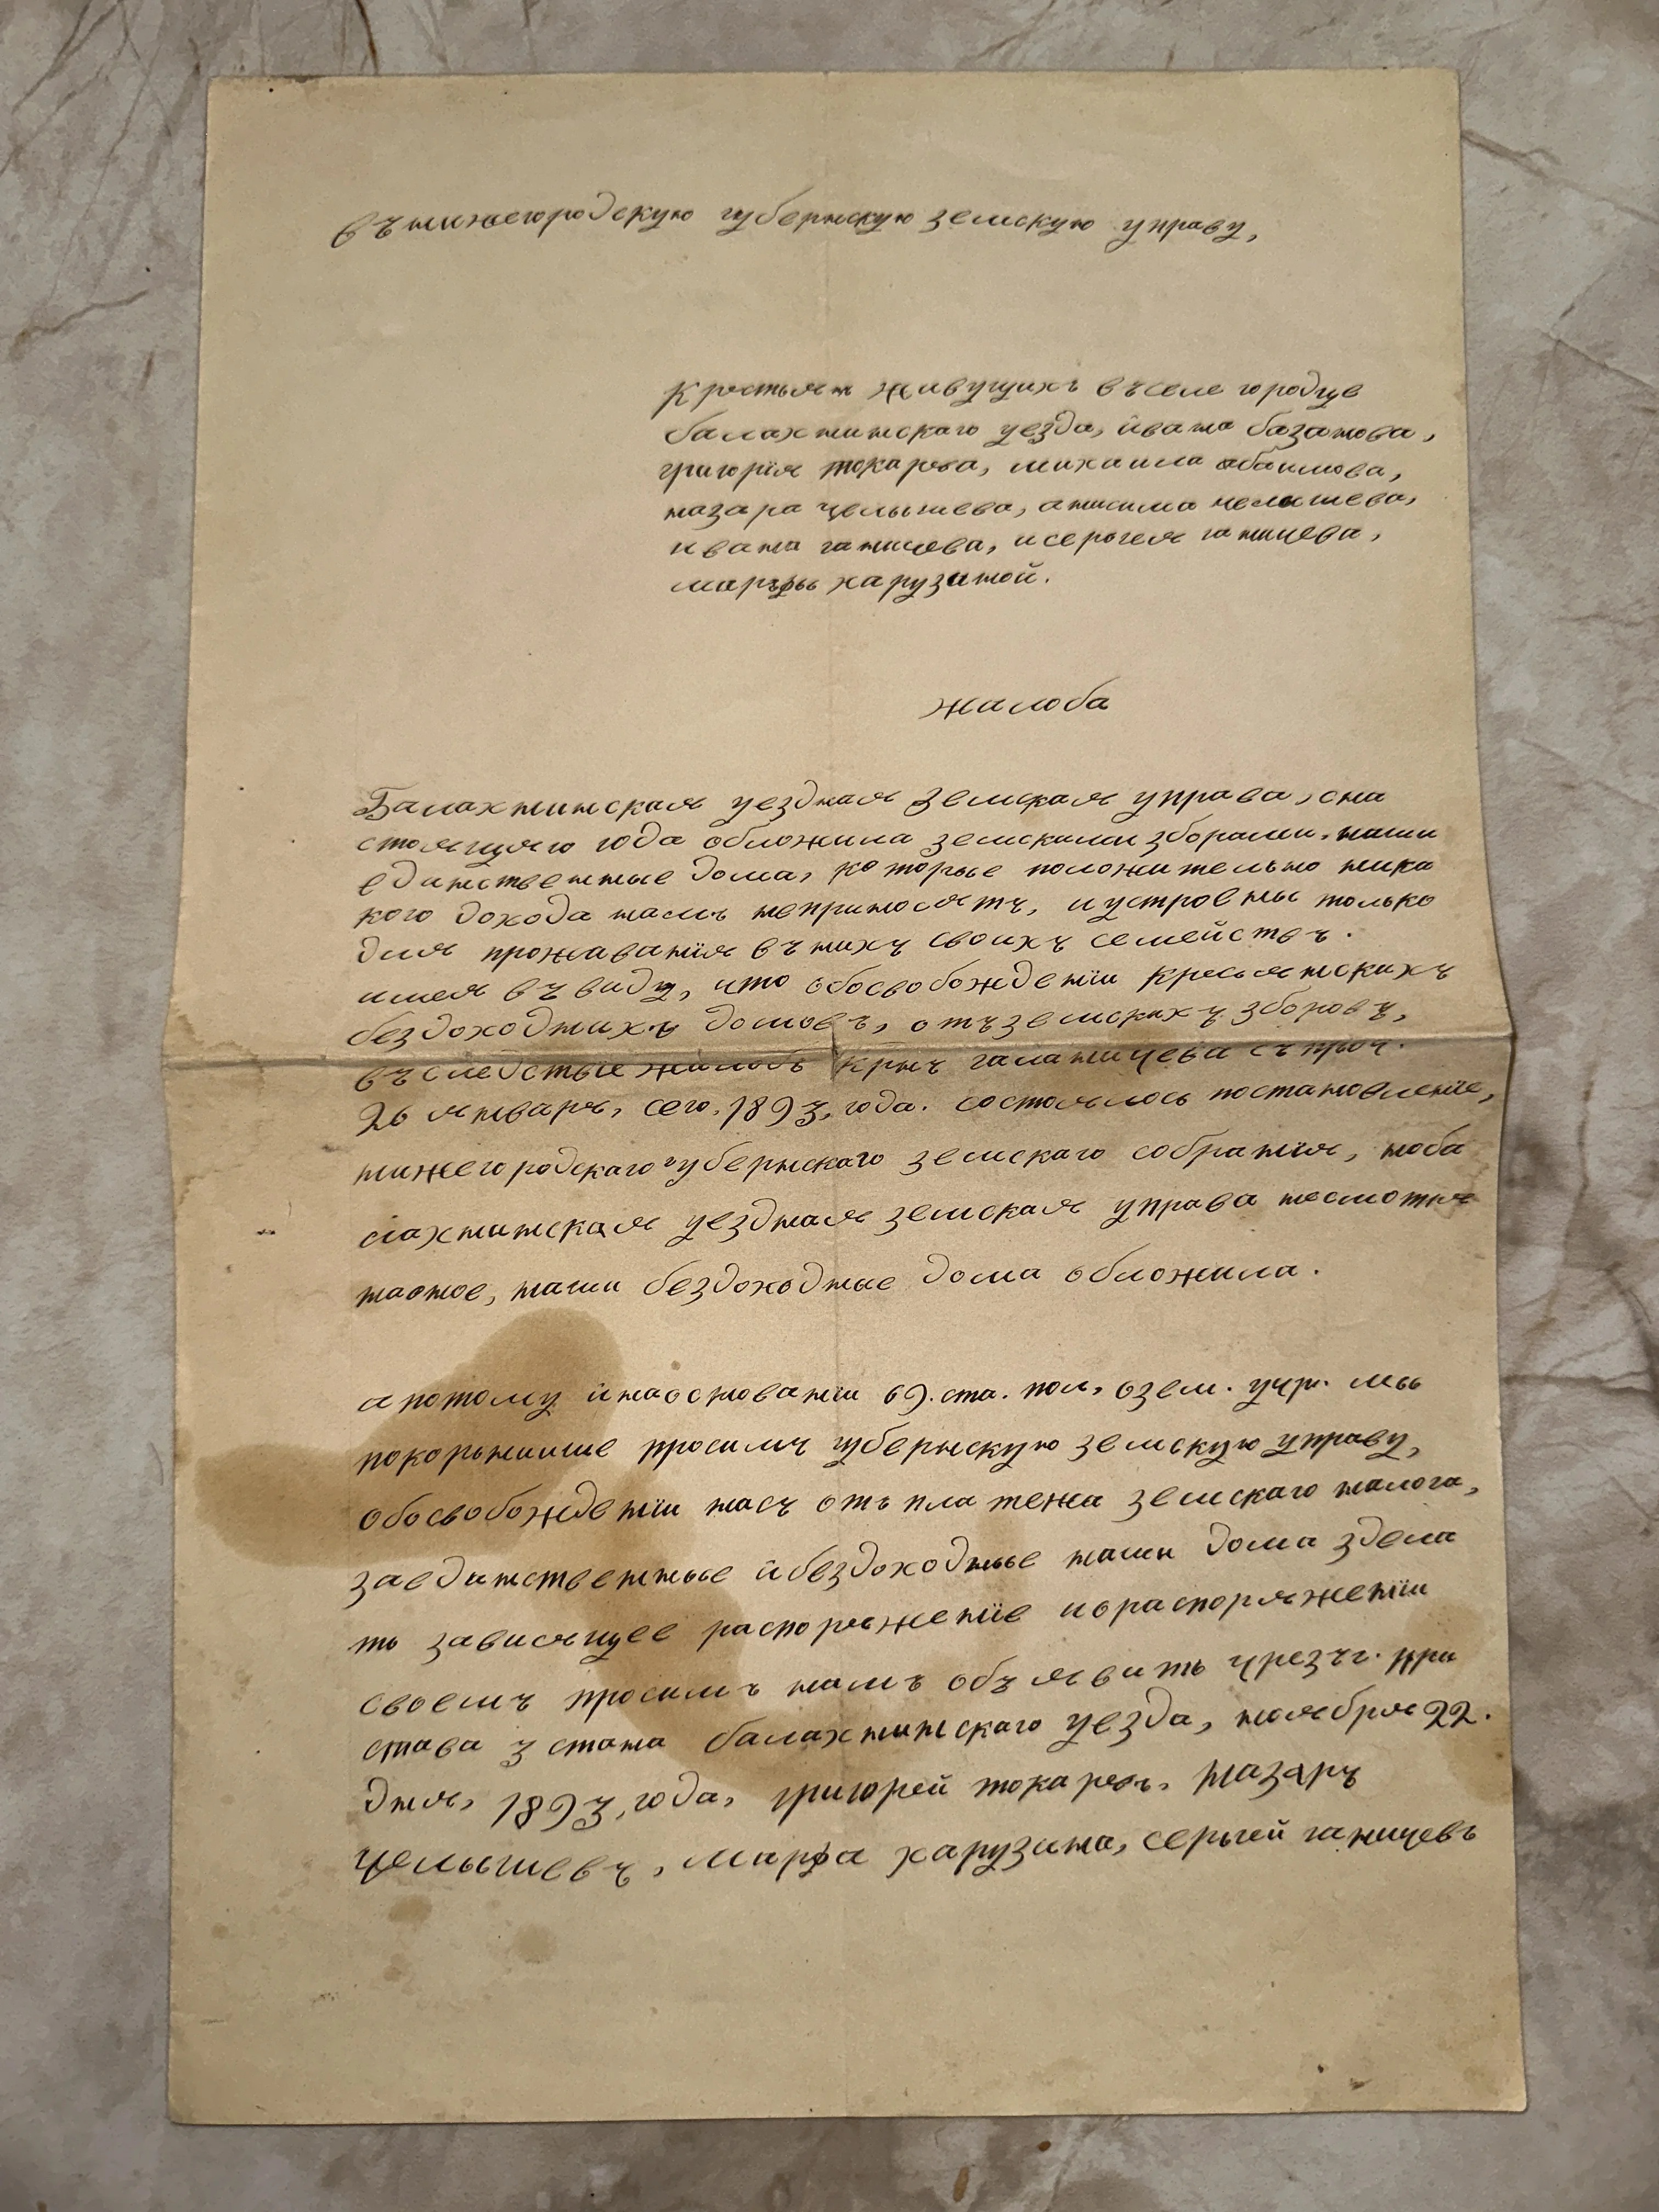 въ нижегородскую губернскую земскую управу,
крестьян живущихъ въ селе городце
балахнинскаго уезда, ивана базанова,
григорія токарева, михаила абаимова,
назара челышева, анисима челышева,
ивана ганичева, и сергея ганичева,
марѳы харузиной.
жалоба
Балахнинская уездная земская управа, сна
стоящяго года обложила земскими зборами, наши
единственные дома, которые положительно ника
кого дохода намъ неприносятъ, и устроены только
для проживанія въ нихъ своихъ семействъ.
имея въ виду, что обосвобожденіи кресьянскихъ
бездоходнихъ домовъ, отъ земскихъ зборовъ,
въследствіе жалобъ крнъ галаничева съ проч.
26 января, сего, 1893, года. состоялось постановленіе,
нижегородскаго губернскаго земскаго собранія, ноба
лахнинская уездная земская управа несмотря
наоное, наши бездоходные дома обложила.
а потому и наоснованіи 69. ста. пол, озем. учр. мы
покорнѣише просимъ губернскую земскую управу,
обосвобожденіи насъ отъ платежа земскаго налога,
заединственные и бездоходные наши дома здела
ть зависящее распоряженіе иораспоряженіи
своемъ просимъ намъ объявить чрезъ г. при
става 3 стана балахнинскаго уезда, ноября 22.
дня, 1893, года, григорей токаревъ, назаръ
челышевъ, марфа харузина, сергей ганичевъ